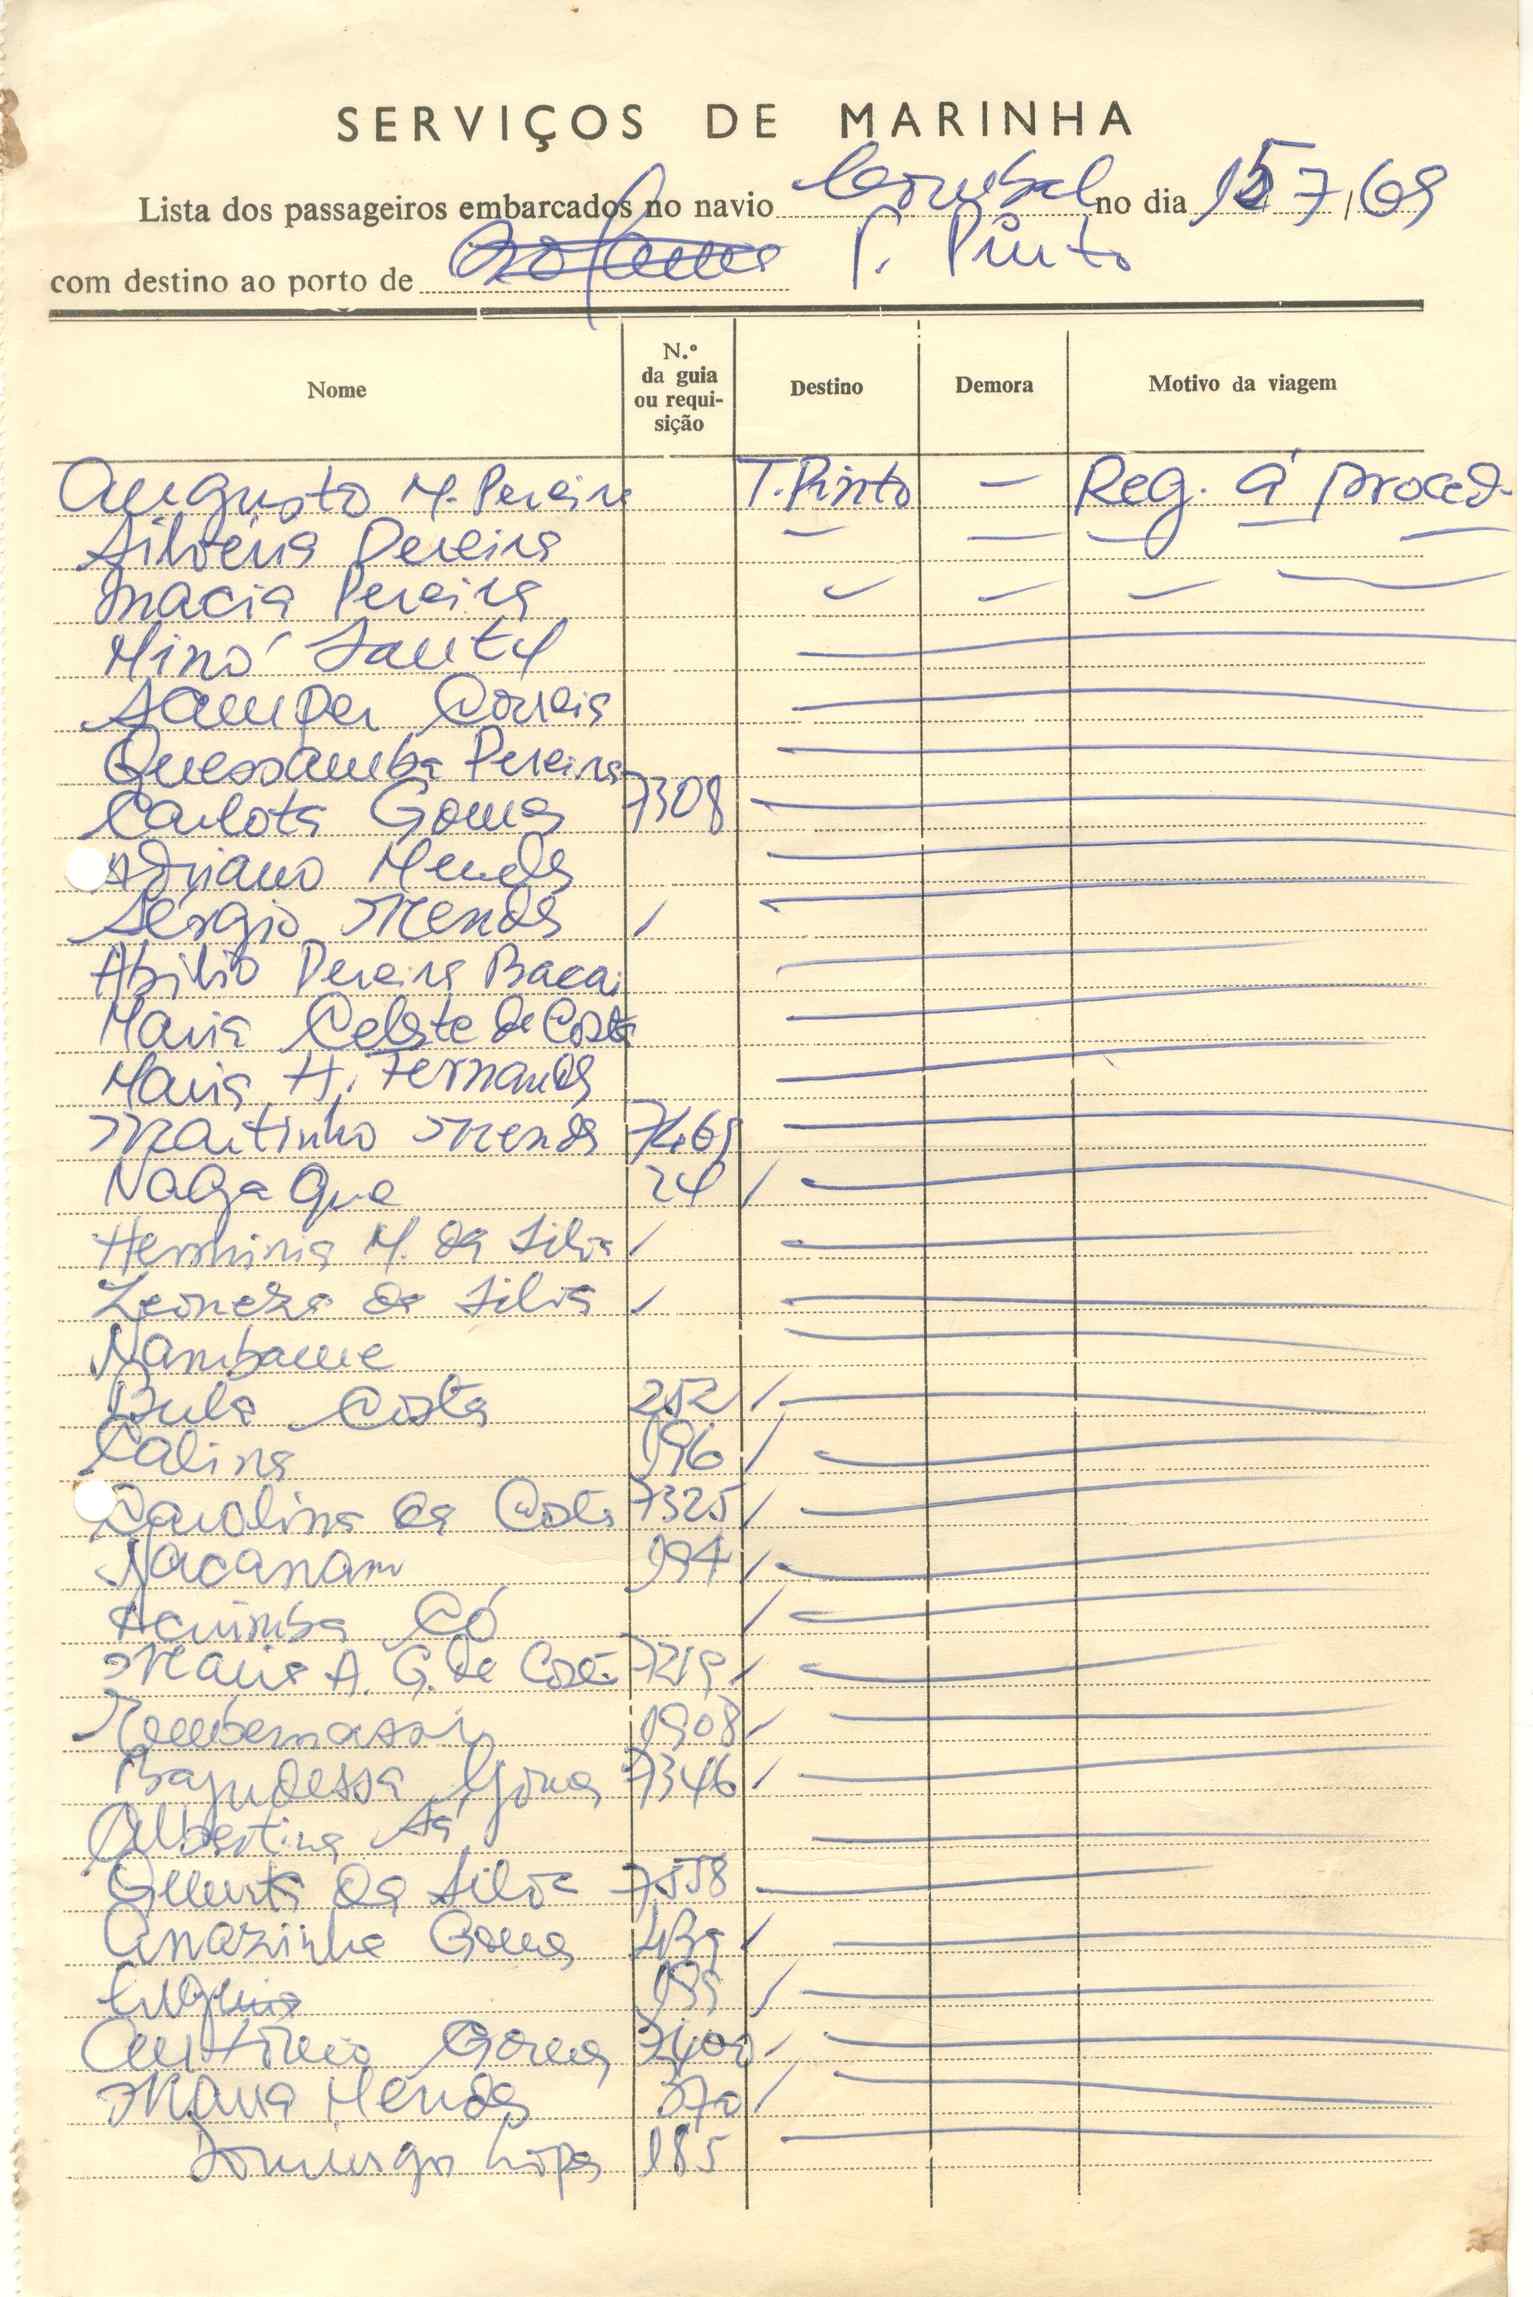 SERVIÇOS DE MARINHA
Lista dos passageiros embarcados no navio Corubal no dia 15 7, 69
com destino ao porto de T. Pinto
Nome
N.º da guia ou requi-sição
Destino
Demora
Motivo da viagem
Augusto M. Pereira T. Pinto — Reg. á proced.
Silvéria Pereira — — — — —
Inacia Pereira
Minó Santy
Samper Correia
Quessamba Pereira
Carlota Gomes 7308
Adriano Mendes
Sérgio Mendes
Abilio Pereira Bacai
Maria Celeste da Costa
Maria H. Fernandes
Martinho Mendes 7469
Naga Que 24
Herminia M. da Silva
Leoneza da Silva
Nambame
Bula Costa 252
Calina 196
Carolina da Costa 7325
Nacanam 194
Acuimba Có
Maria A. G. da Costa 7219
1908
Bajudessa Gomes 7346
Albertina Sá
da Silva 7558
Anazinha Gomes
Eugenia 199
António Gomes 7400
Maria Mendes 370
Domingos Lopes 185